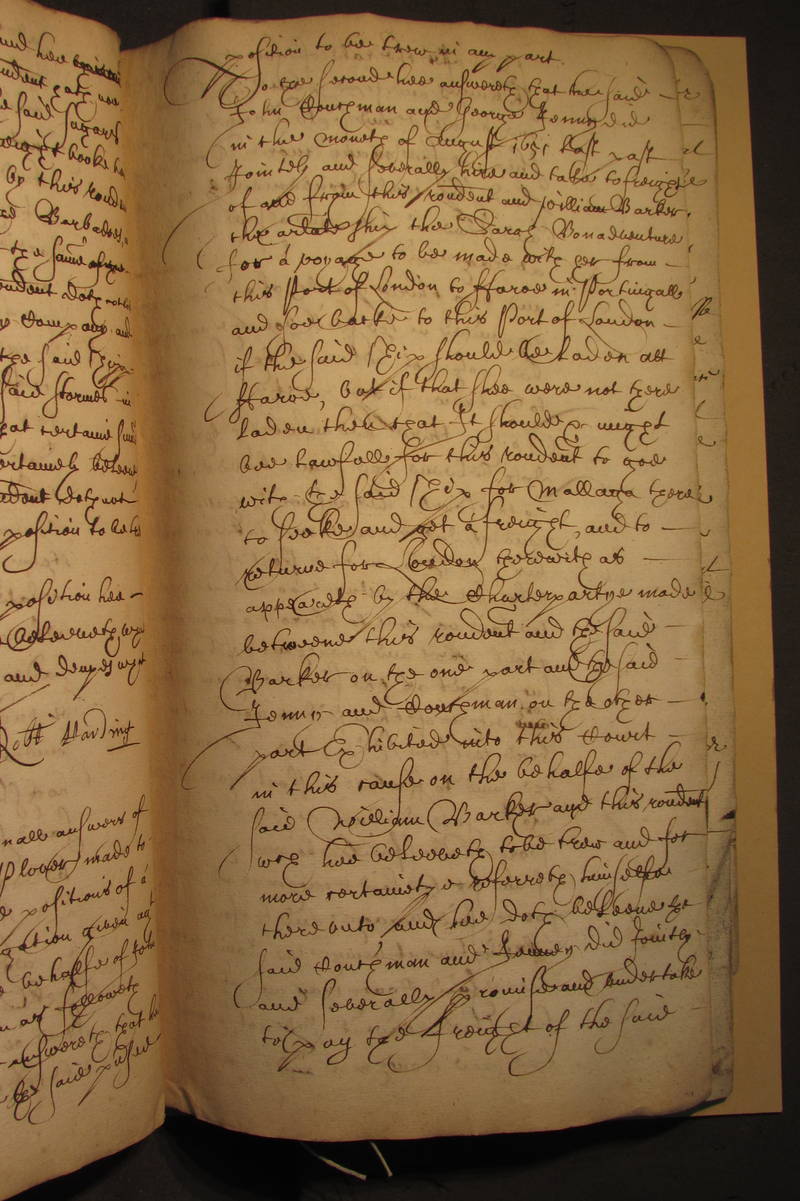 and hee
said sugars
booke
by this rondent
Barbados
the same
Company and
the said shipp
said stormes in
that certaine
certainely beleeve
rondent doth not
position to be
position hee
beleeveth
and denyes
Robt Harding
nall answers of
Plover made to
positions of a
gation given
behalfe of John
as followeth
answereth that
the said
position to be trew in any part
To the second hee answereth that the said
John Couchman and George Jenny did
in the moneth of August 1651 last past
Jointly and severally hire and take to freight
of and from this rondent and William Barker
the arlate ship the Sarah Bonadventure
for a voyage to be made with her from
this Port of London to ffaroe in Portingall
and soe backe to this Port of London
if the said ship should be laden att
ffaroe, but if that shee were not there
laden then that It should & might
bee lawfull for this rondent to goe
with the said ship for Mallaga there
to seeke and get a freight, and to
returne for London therewith as
appeareth by the Charterpartye made
betweene this rondent and the said
Barker on the one part and the said
Jenny and Couchman on the other
part Exhibited into this Court
in this cause on the behalfe of the
said William Barker and this rondent
wch hee beleeveth to be trew and for
more certainetye referreth himselfe
thereunto and hee doth beleeve the
said Couchman and Jenney did Jointly
and severally promise and undertake
to pay the freight of the said